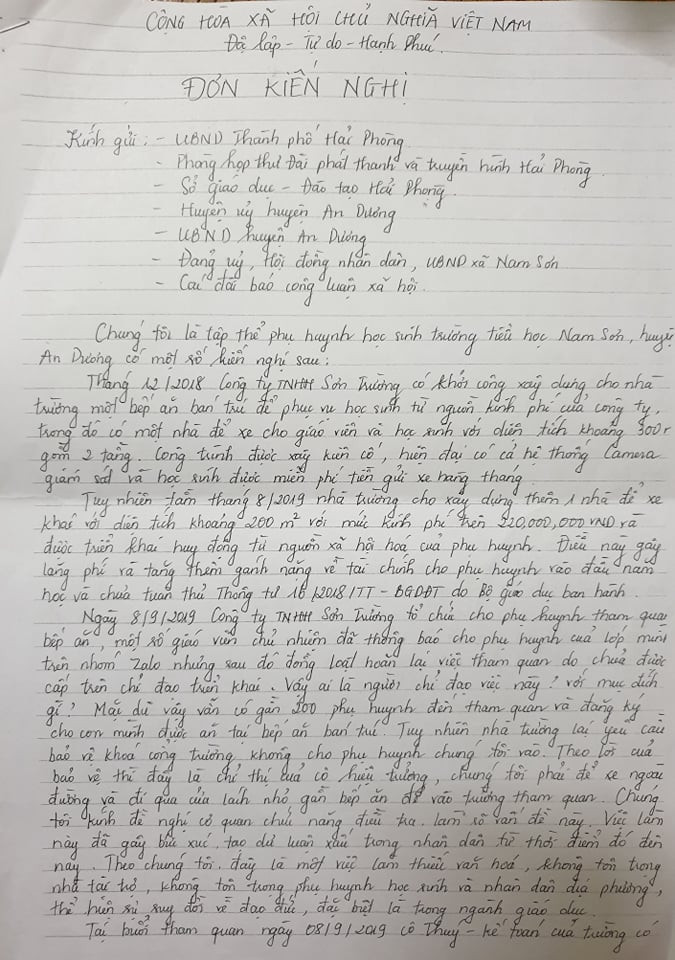 CỘNG HÒA XÃ HỘI CHỦ NGHĨA VIỆT NAM
Độ lập - Tự do - Hạnh Phúc.
ĐƠN KIẾN NGHỊ
Kính gửi: - UBND Thành phố Hải Phòng
- Phòng họp thư Đài phát thanh và truyền hình Hải Phòng.
- Sở giáo dục - Đào tạo Hải Phòng.
- Huyện uỷ huyện An Dương
- UBND huyện An Dương
- Đảng uỷ, Hội đồng nhân dân, UBND xã Nam Sơn
- Các đài báo công luận xã hội.
Chúng tôi là tập thể phụ huynh học sinh trường tiểu học Nam Sơn, huyện
An Dương có một số kiến nghị sau:
Tháng 12/2018 Công ty TNHH Sơn Trường có khởi công xây dựng cho nhà
trường một bếp ăn bán trú để phục vụ học sinh từ nguồn kinh phí của công ty,
trong đó có một nhà để xe cho giáo viên và học sinh với diện tích khoảng 300
gồm 2 tầng. Công trình được xây kiên cố, hiện đại có cả hệ thống Camera
giám sát và học sinh được miễn phí tiền gửi xe hàng tháng.
Tuy nhiên tầm tháng 8/2019 nhà trường cho xây dựng thêm 1 nhà để xe
khác với diện tích khoảng 200 m² với mức kinh phí trên 220,000,000 VND và
được triển khai huy động từ nguồn xã hội hoá của phụ huynh. Điều này gây
lãng phí và tăng thêm gánh nặng về tài chính cho phụ huynh vào đầu năm
học và chưa tuân thủ Thông tư 16/2018/TT - BGDĐT do Bộ giáo dục ban hành.
Ngày 8/9/2019 Công ty TNHH Sơn Trường tổ chức cho phụ huynh tham quan
bếp ăn, một số giáo viên chủ nhiệm đã thông báo cho phụ huynh của lớp mình
trên nhóm Zalo nhưng sau đó đồng loạt hoãn lại việc tham quan do chưa được
cấp trên chỉ đạo triển khai. Vậy ai là người chỉ đạo việc này? với mục đích
gì? Mặc dù vậy vẫn có gần 200 phụ huynh đến tham quan và đăng ký
cho con mình được ăn tại bếp ăn bán trú. Tuy nhiên nhà trường lại yêu cầu
bảo vệ khoá cổng trường không cho phụ huynh chúng tôi vào. Theo lời của
bảo vệ thì đây là chỉ thị của cô hiệu trưởng, chúng tôi phải để xe ngoài
đường và đi qua cửa lách nhỏ gần bếp ăn để vào trường tham quan. Chúng
tôi kính đề nghị cơ quan chức năng điều tra làm rõ vấn đề này. Việc làm
này đã gây bức xúc, tạo dư luận xấu trong nhân dân từ thời điểm đó đến
nay. Theo chúng tôi, đây là một việc làm thiếu văn hoá, không tôn trọng
nhà tài trợ, không tôn trọng phụ huynh học sinh và nhân dân địa phương,
thể hiện sự suy đồi về đạo đức, đặc biệt là trong ngành giáo dục.
Tại buổi tham quan ngày 08/9/2019 cô Thuý - kế toán của trường có